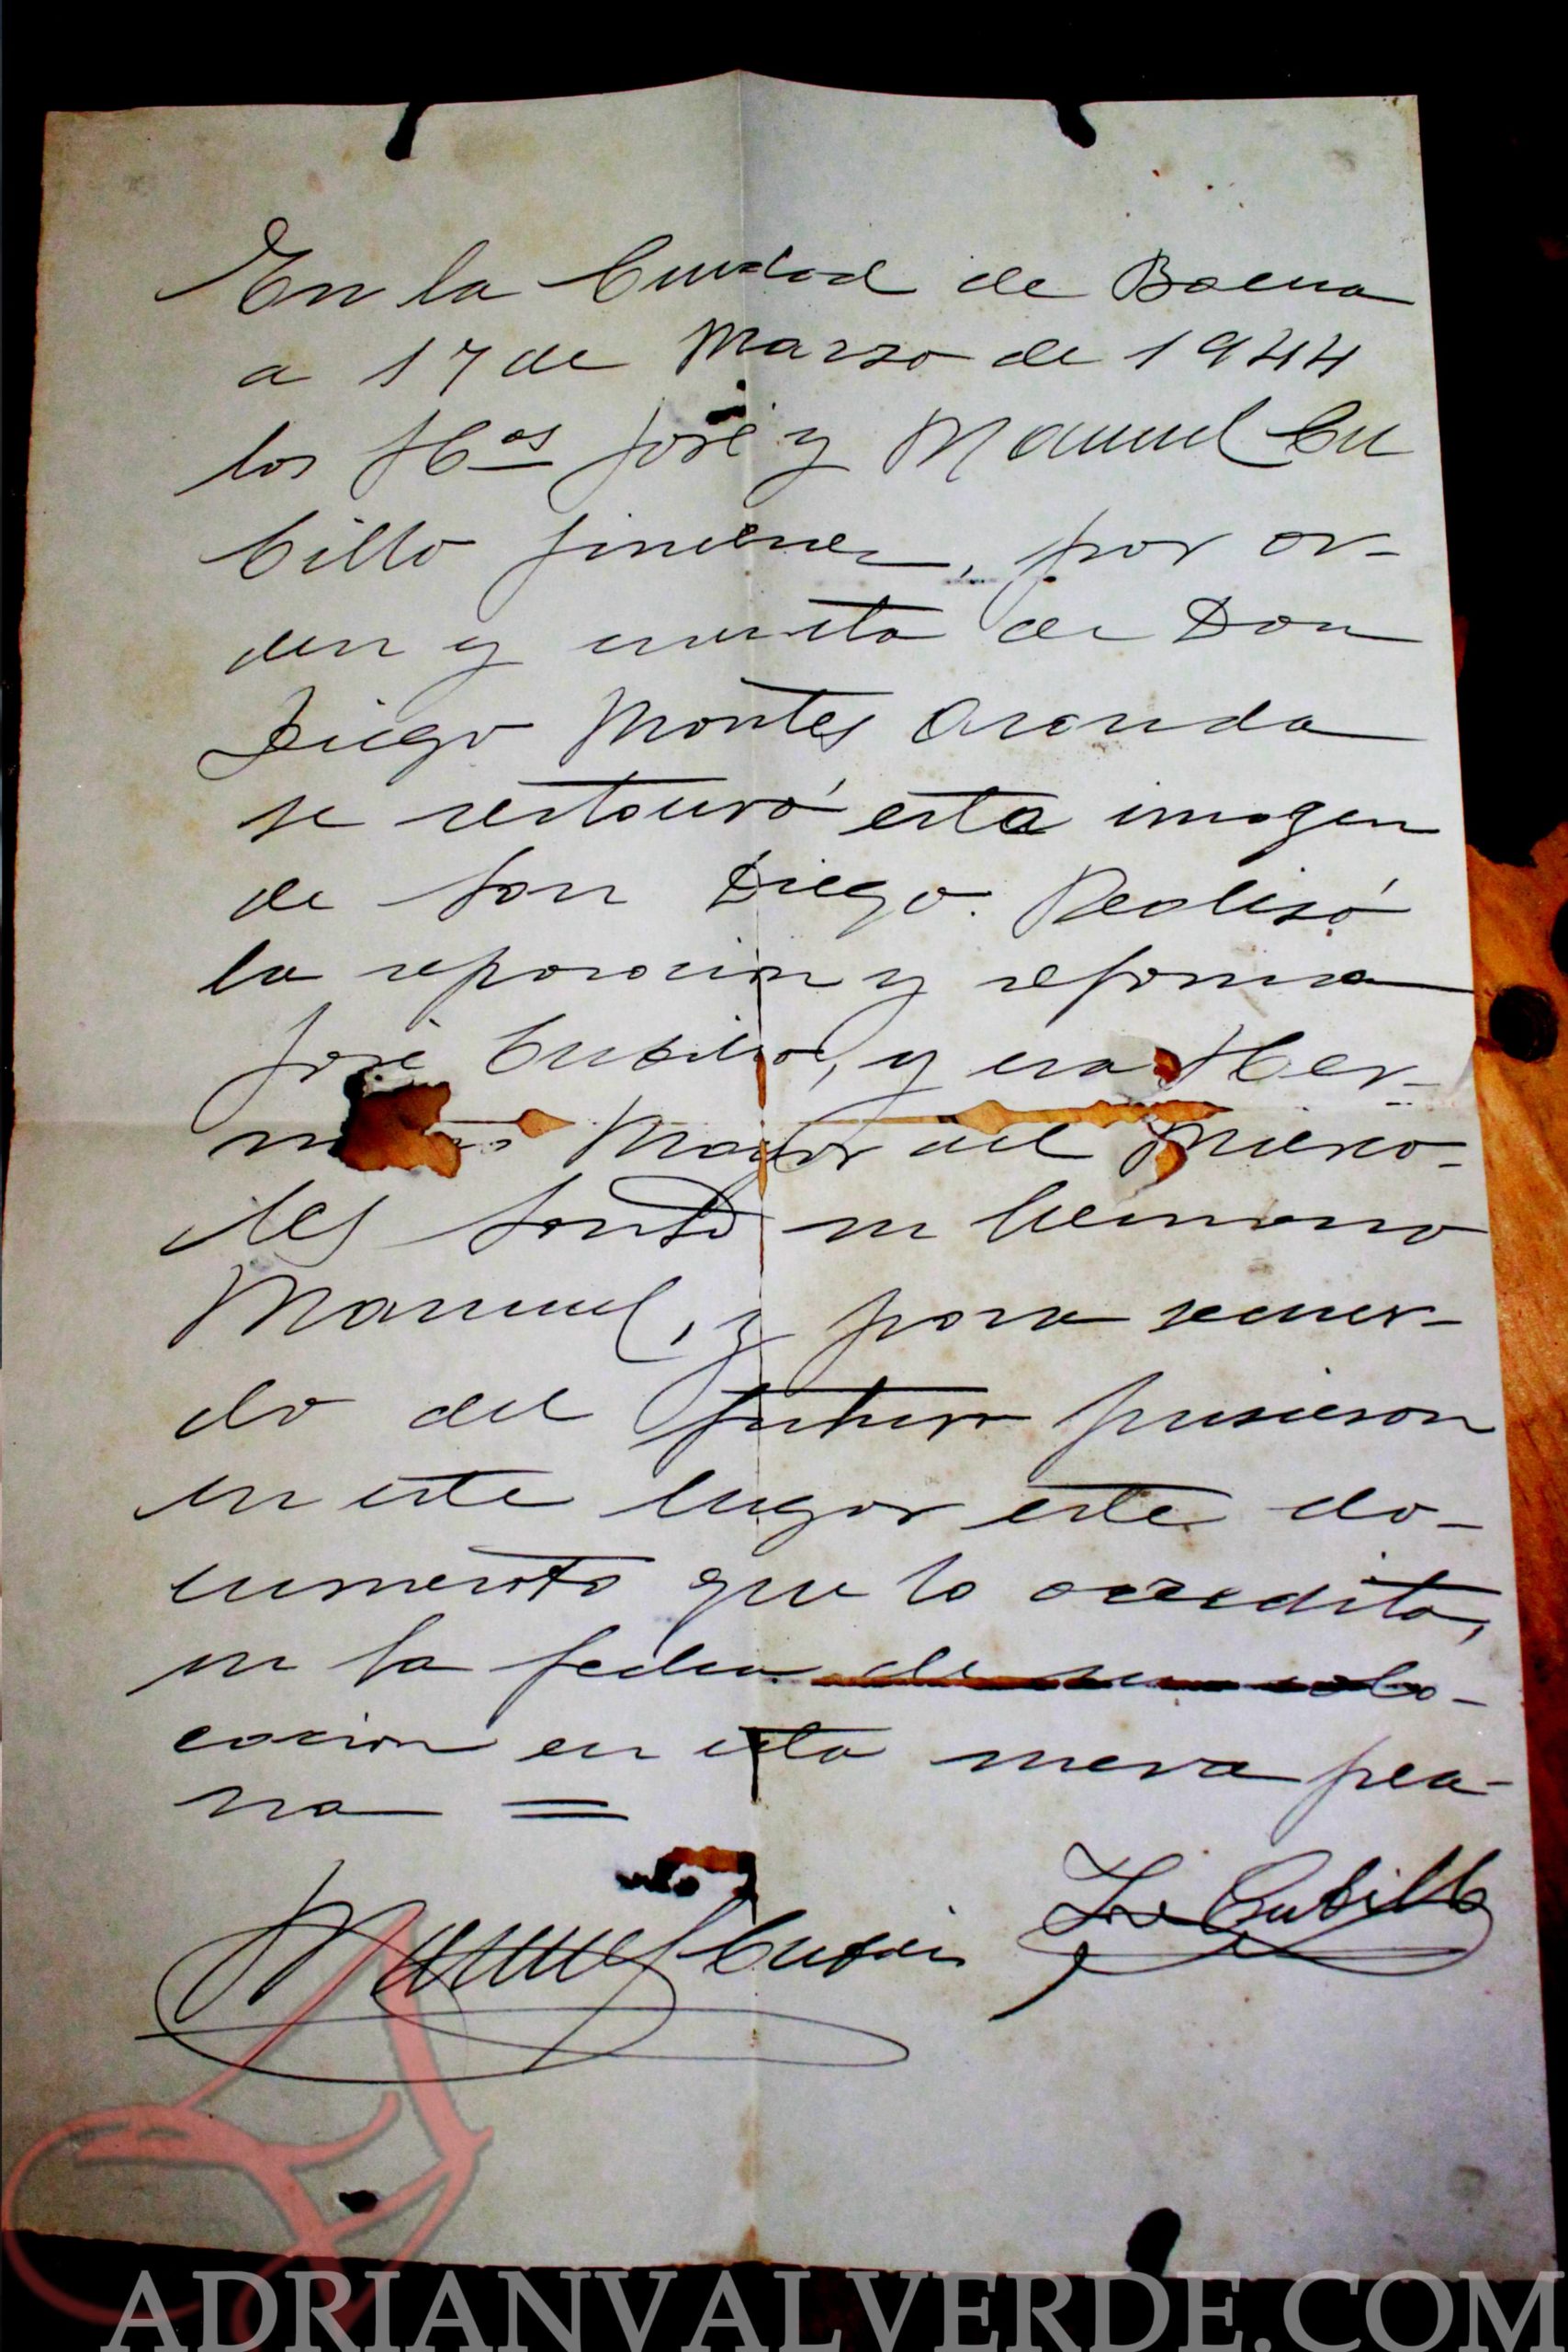 En la Ciudad de Baena
a 17 de Marzo de 1944
los Hos José y Manuel Cu
billo Jimenez, por or-
den y cuenta de Don
Diego Montes Aranda
se restauró esta imagen
de San Diego. Realisó
la reparacion y reforma
José Cubillo, y era Her-
Mayor del Mierco-
les Santo su hermano
Manuel, y para recuer-
do del futuro pusieron
en este lugar este do-
cumento que lo acredita,
en la fecha de su colo-
cacion en esta nueva pea-
na =
Manuel Cubillo
José Cubillo
ADRIANVALVERDE.COM